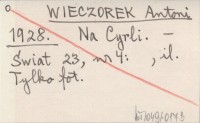 WIECZOREK Antoni
1928. Na Cyrli. –
Świat 23, nr 4: , il.
Tylko fot.